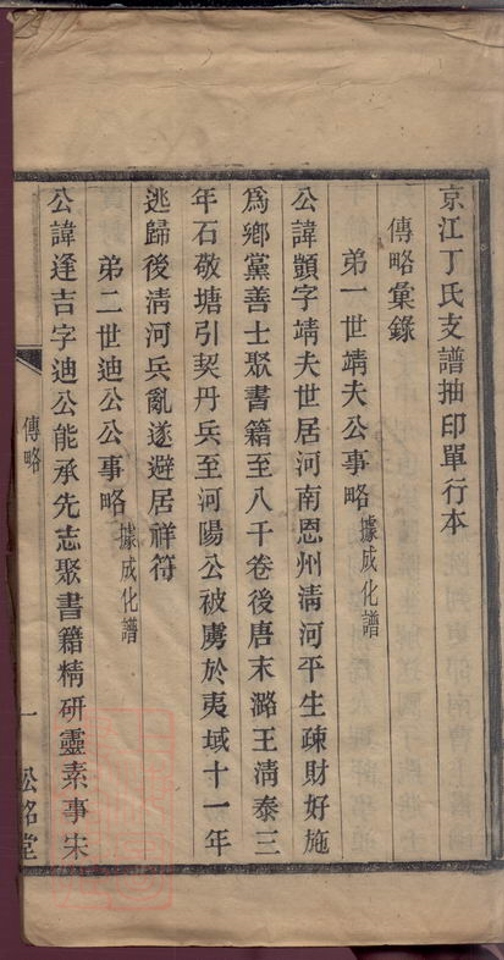 京江丁氏支譜抽印單行本
傳略彙錄
弟一世靖夫公事略據成化譜
公諱顗字靖夫世居河南恩州清河平生疎財好施
爲鄉黨善士聚書籍至八千卷後唐末潞王清泰三
年石敬塘引契丹兵至河陽公被虜於夷域十一年
逃歸後清河兵亂遂避居祥符
弟二世迪公公事略據成化譜
公諱逢吉字迪公能承先志聚書籍精研靈素事宋
傳略
一
松茗堂